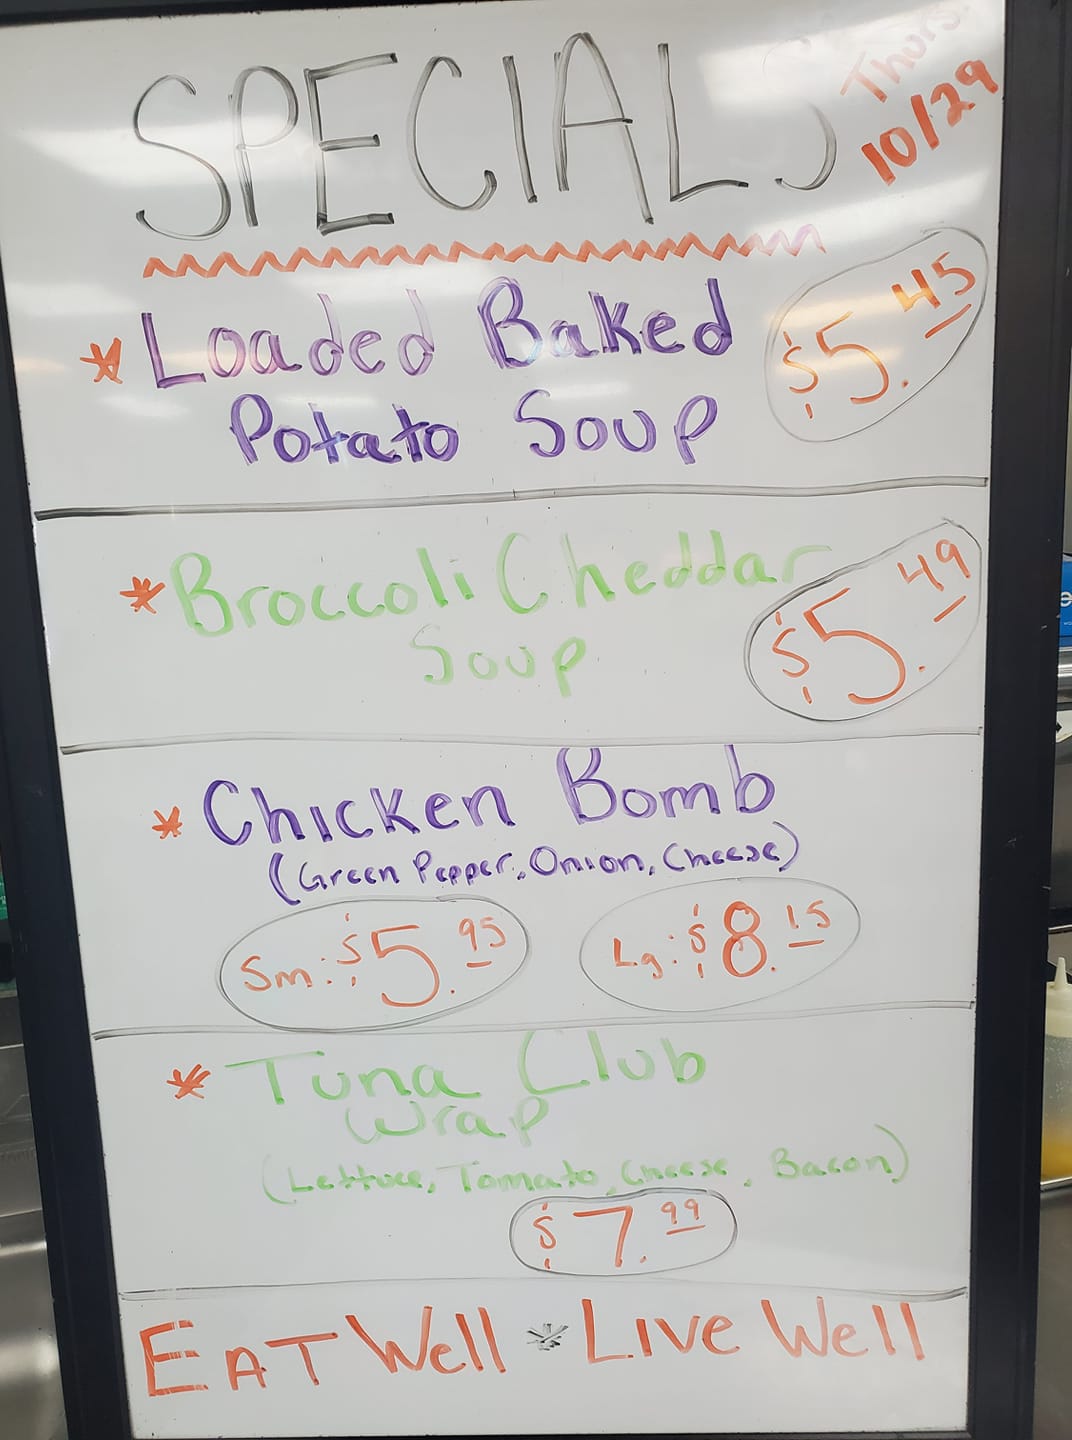 SPECIALS
Thurs.
10/29
* Loaded Baked
Potato Soup
$5.45
* Broccoli Cheddar
Soup
$5.49
* Chicken Bomb
(Green Pepper, Onion, Cheese)
Sm: $5.95
Lg: $8.15
* Tuna Club
Wrap
(Lettuce, Tomato, Cheese, Bacon)
$7.99
EAT Well * LIVE Well